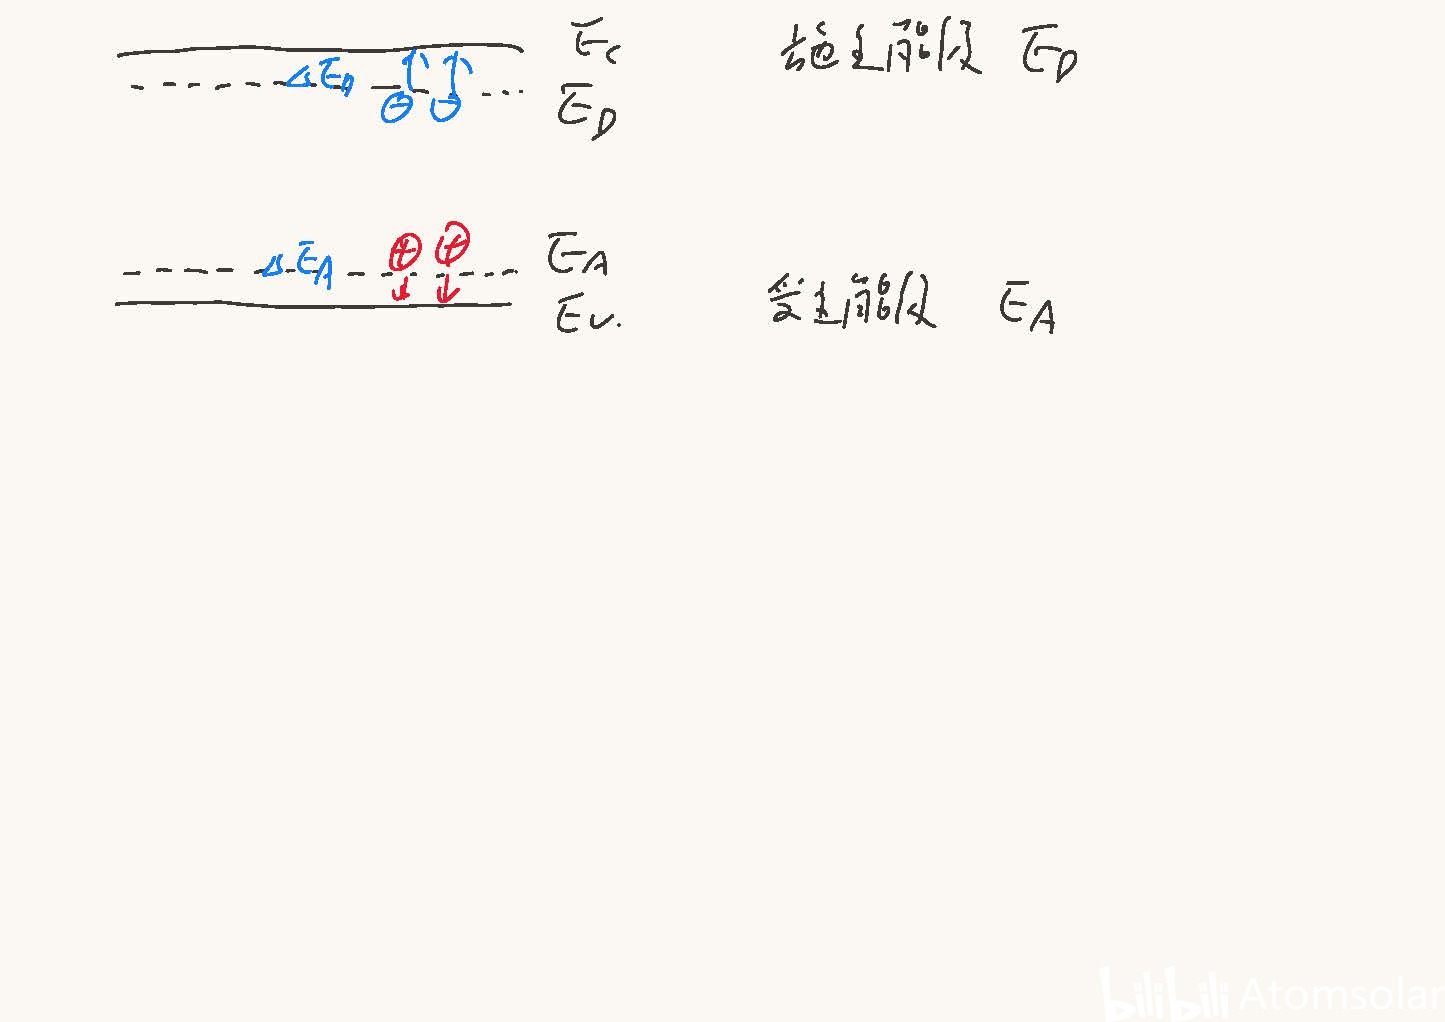 E_C 施主能级 E_D
ΔE_D
⊖ ⊖
E_D
⊕ ⊕
E_A
ΔE_A
E_V. 受主能级 E_A
bilibili Atomsolar